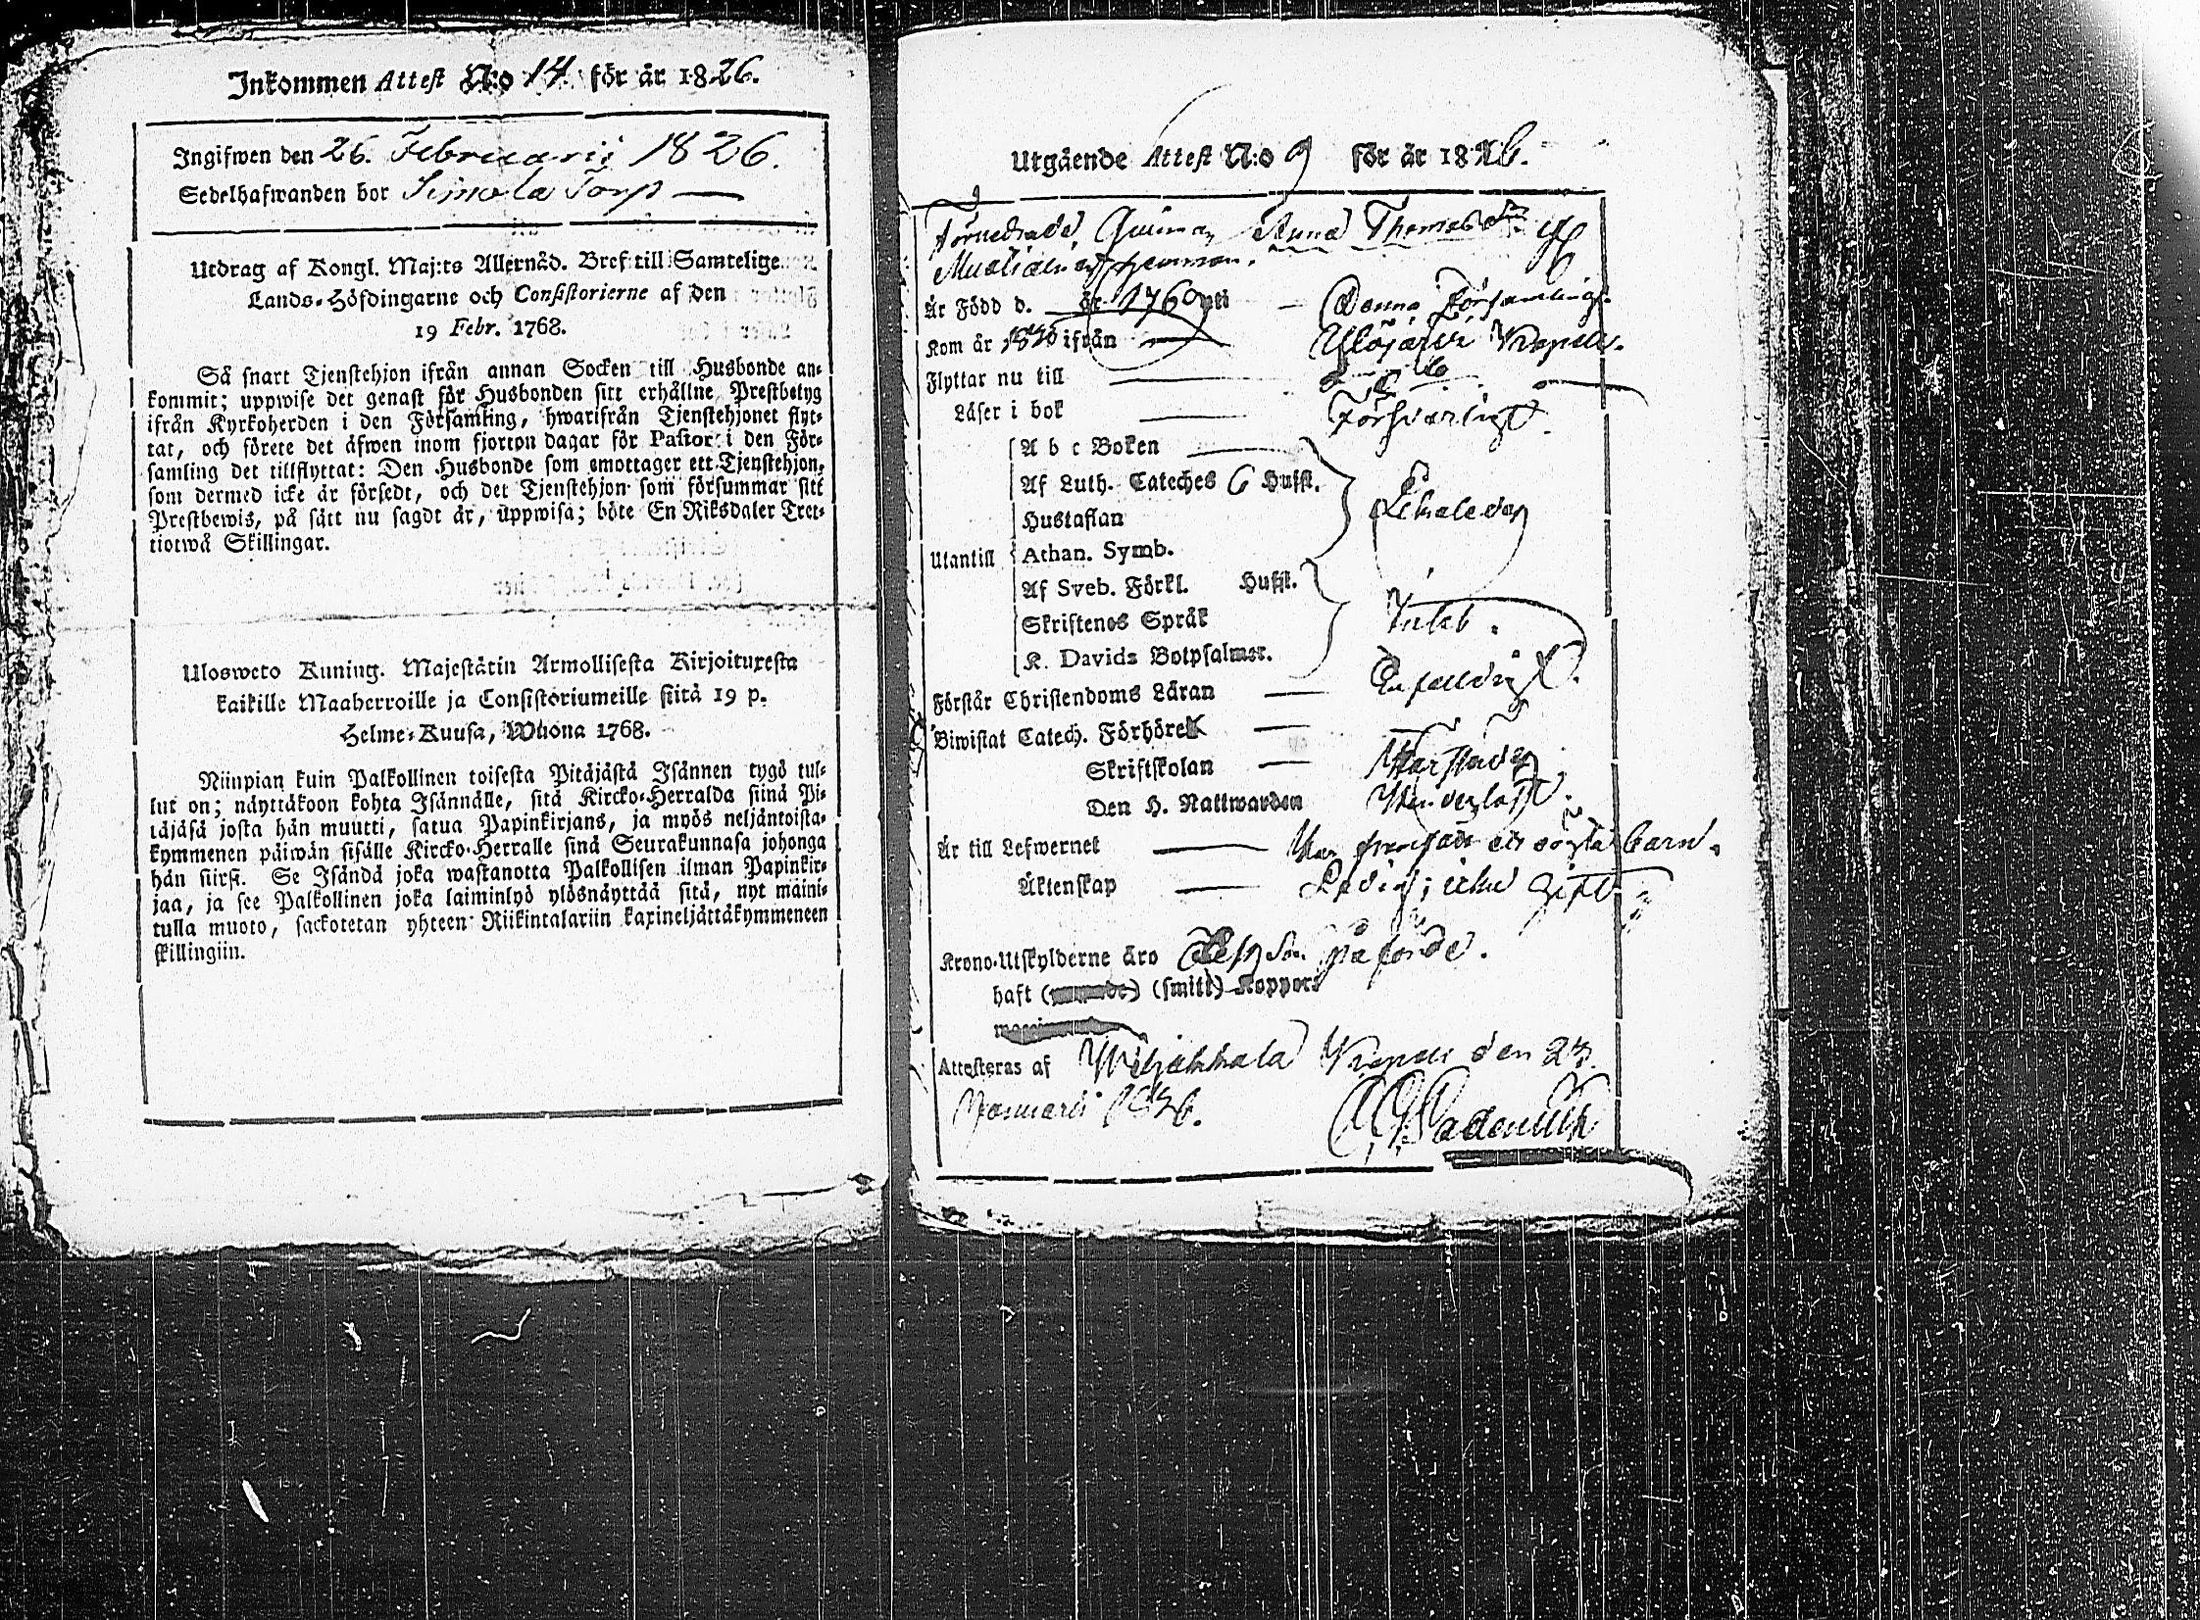 Inkommen Attest N:o 14. för år 1826.
Ingifwen den 26. Februarii 1826.
Sedelhafwanden bor Simola Torp
Utdrag af Kongl. Maj:ts Allernåd. Bref till Samtelige
Lands-Höfdingarne och Consistorierne af den
19 Febr. 1768.
Så snart Tjenstehjon ifrån annan Socken till Husbonde an-
kommit; uppwise det genast för Husbonden sitt erhållne Prestbetyg
ifrån Kyrkoherden i den Församling, hwarifrån Tjenstehjonet flyt-
tat, och förete det äfwen inom fjorton dagar för Pastor i den För-
samling det tillflyttat: Den Husbonde som emottager ett Tjenstehjon,
som dermed icke är försedt, och det Tjenstehjon som försummar sitt
Prestbewis, på sätt nu sagdt är, uppwisa; böte En Riksdaler Tret-
tiotwå Skillingar.
Ulosweto Kuning. Majestätin Armollisesta Kirjoituxesta
kaikille Maaherroille ja Consistoriumeille siitä 19 p.
Helme-Kuusa, Wuona 1768.
Niinpian kuin Palkollinen toisesta Pitäjästä Isännen tygö tul-
lut on; näyttäkoon kohta Isännälle, sitä Kircko-Herralda siinä Pi-
täjäsä josta hän muutti, saatua Papinkirjans, ja myös neljäntoista-
kymmenen päiwän sisälle Kircko-Herralle siinä Seurakunnasa johonga
hän siirsi. Se Isändä joka wastanotta Palkollisen ilman Papinkir-
jaa, ja see Palkollinen joka laiminlyö ylösnäyttää sitä, nyt maini-
tulla muoto, sackotetan yhteen Riikintalariin kaxineljättäkymmeneen
skillingiin.
Utgående Attest N:o 9 för år 1826.
Qwinnan Anna Thomasdr
Är Född d. år 1760 uti Denna Församling.
Kom år ifrån Ylöjärvi Kapell.
Flyttar nu till
Läser i bok Försvarligt.
A b c Boken
Af Luth. Cateches 6 Huffst.
Hustaflan
Utantill Athan. Symb.
Af Sveb. Förkl. Huffst.
Skriftenes Språk
K. Davids Botpsalmer.
Förstår Christendoms Läran Enfaldigt.
Biwistat Catech. Förhören
Skriftskolan
Den H. Nattwarden
Är till Lefwernet barn.
Äktenskap Ledig; icke gift
Krono-Utskylderne äro påförde.
haft (smitt) Koppor
Attesteras af Kapell den
Januarii 1826.